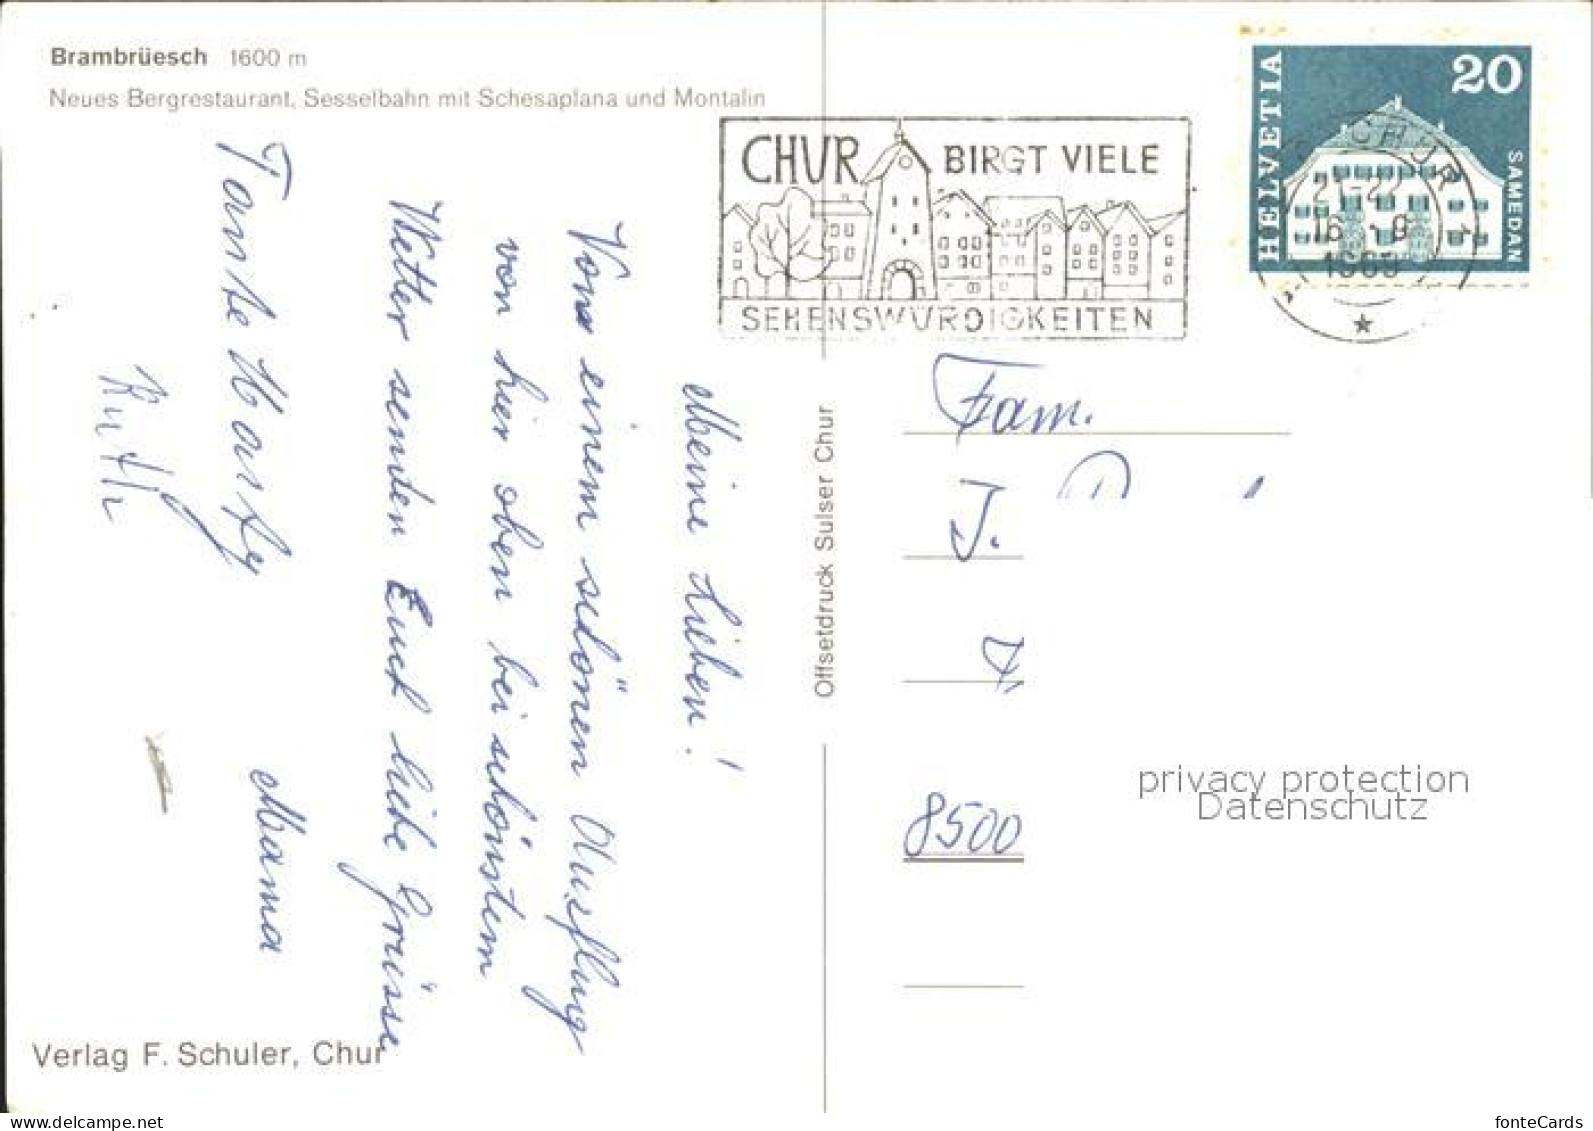 Brambrüesch 1600 m
Neues Bergrestaurant, Sesselbahn mit Schesaplana und Montalin
CHUR BIRGT VIELE
SEHENSWÜRDIGKEITEN
HELVETIA
20
SAMEDAN
CHUR 1
21-22
16. 9
1969
Meine Lieben!
Von einem schönen Ausflug
von hier oben bei schönstem
Wetter senden Euch liebe Grüsse
Mama
Tante
Offsetdruck Sulser Chur
Fam.
J.
8500
privacy protection
Datenschutz
Verlag F. Schuler, Chur
www.delcampe.net
fonteCards